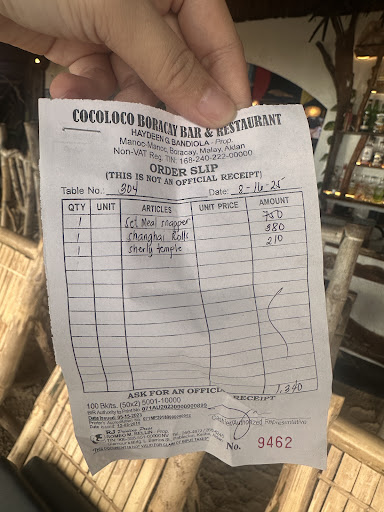 COCOLOCO BORACAY BAR & RESTAURANT
HAYDEEN G. BANDIOLA - Prop.
Manoc-Manoc, Boracay, Malay, Aklan
Non-VAT Reg. TIN: 168-240-222-00000
ORDER SLIP
(THIS IS NOT AN OFFICIAL RECEIPT)
Table No.: 304 Date: 8-16-25
QTY UNIT ARTICLES UNIT PRICE AMOUNT
1 Set Meal snapper 750
1 Shanghai Rolls 380
1 Sherly temple 210
1,340
ASK FOR AN OFFICIAL RECEIPT
100 Bklts. (50x2) 5001-10000
Cashier/Authorized Representative
No. 9462